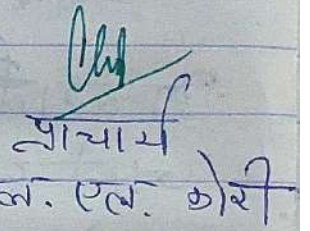 प्राचार्य
एल. कोरी